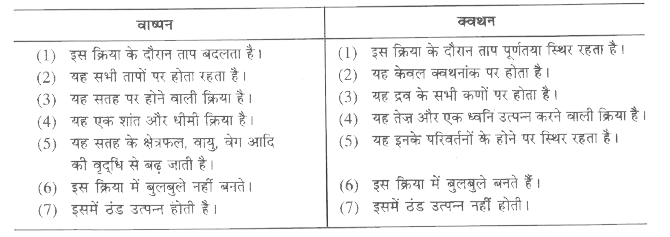 वाष्पन
क्वथन
(1) इस क्रिया के दौरान ताप बदलता है।
(2) यह सभी तापों पर होता रहता है।
(3) यह सतह पर होने वाली क्रिया है।
(4) यह एक शांत और धीमी क्रिया है।
(5) यह सतह के क्षेत्रफल, वायु, वेग आदि
की वृद्धि से बढ़ जाती है।
(6) इस क्रिया में बुलबुले नहीं बनते।
(7) इसमें ठंड उत्पन्न होती है।
(1) इस क्रिया के दौरान ताप पूर्णतया स्थिर रहता है।
(2) यह केवल क्वथनांक पर होता है।
(3) यह द्रव के सभी कणों पर होता है।
(4) यह तेज़ और एक ध्वनि उत्पन्न करने वाली क्रिया है।
(5) यह इनके परिवर्तनों के होने पर स्थिर रहता है।
(6) इस क्रिया में बुलबुले बनते हैं।
(7) इसमें ठंड उत्पन्न नहीं होती।